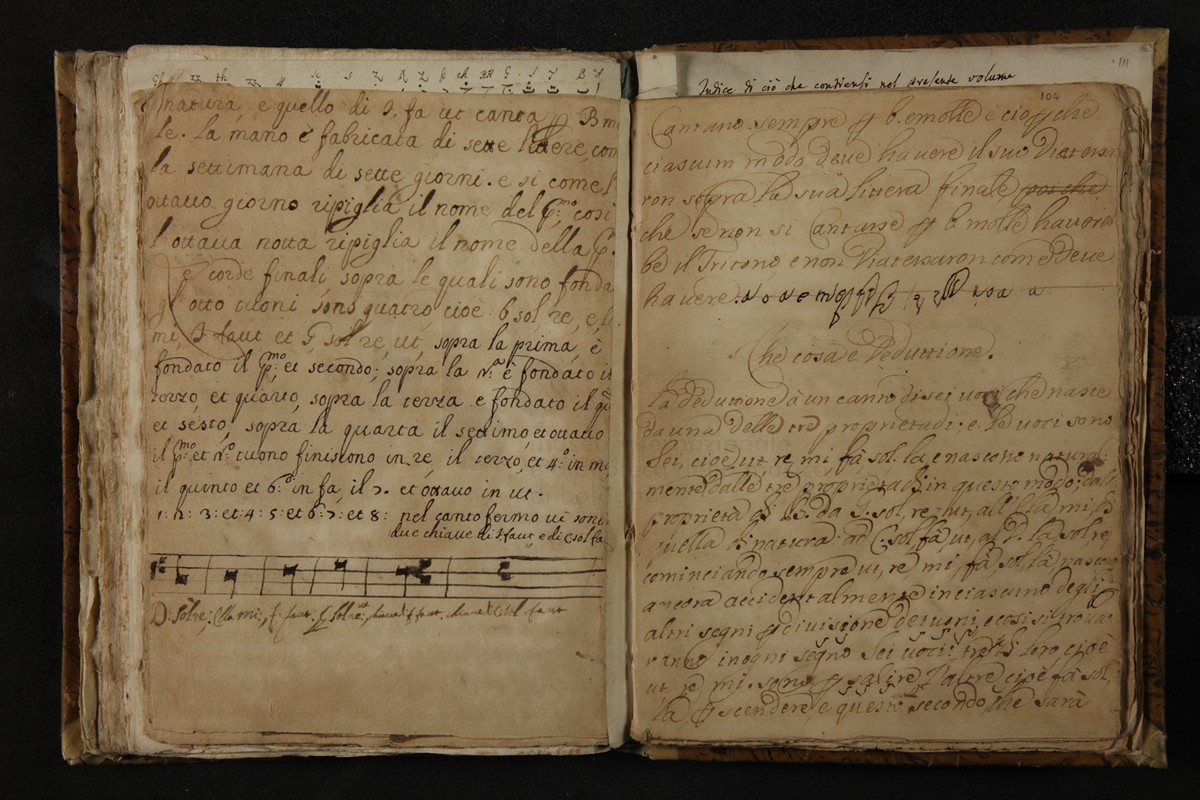 natura, e quello di F. fa ut canta B mo
le. la mano è fabricata di sette littere, com
la settimana di sette giorni. e si come l
ottavo giorno ripiglia il nome del p.mo cosi
l ottava notta ripiglia il nome della p.
Le corde finali, sopra le quali sono fonda
gl otto tuoni sono quatro cioè: D sol re, e, la
mi, F faut et G sol re, ut, sopra la prima, è
fondato il p.mo et secondo; sopra la 2.a è fondato il
terzo, et quarto, sopra la terza e fondato il qu
et sesto, sopra la quarta il settimo et ottavo
il p.mo et 2.o tuono finiscono in re, il terzo, et 4.o in mi
il quinto et 6.o in fa, il 7. et ottavo in ut.
1: 2: 3: et 4: 5: et 6: 7: et 8: nel canto fermo vi sono
due chiave di F faut e di C sol fa
D. solre; Elami; f. faut. G solre ut
Indice di ciò che contiensi nel presente volume
111
104
Cantano sempre p b. emolle è cio p che
ciascuim modo deve havere il suo Diatessa
ron sopra la sua littera finale poi chè
che se non si Cantasse p b. molle haveria
be il Tritono, e non Diatessaron come deve
havere.
Che cosa è Deduttione.
La deduttione è un canto di sei voci che nasce
da una delle tre proprietadi; e. le voci sono
sei, cioè ut, re, mi fà sol. la, e nascono natural:
mente dalle tre proprietadi in questo modo; dalla
proprietà di B. da G. sol, re, ut, all E la, mi,
quella di natura: ad C. sol, fà, ut, ad D. la, sol, re,
cominciando sempre ut, re mi, fà, sol, là, nascono
ancora accidentalmente in ciascuno degli
altri segni p divisione de tuoni, e cosi si trova:
ranno in ogni segno sei voci: tre di loro cioè
ut re mi. sono p salire l'altre cioè fà sol,
là, p scendere, e questo secondo che sarà